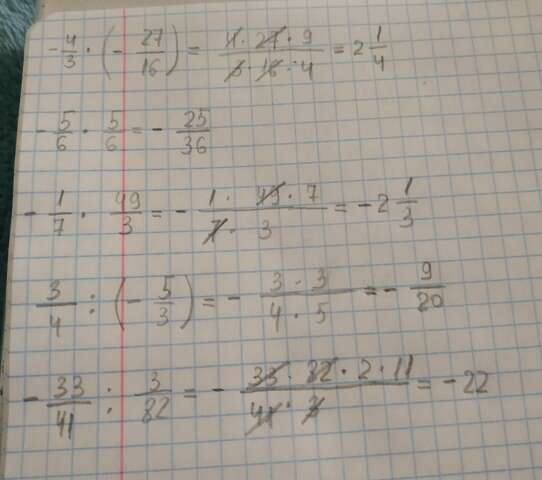 -4/3 · (- 27/16) = 4 · 27 · 9 / 3 · 16 · 4 = 2 1/4
- 5/6 · 5/6 = - 25/36
- 1/7 · 49/3 = - 1 · 49 · 7 / 7 · 3 = -2 1/3
3/4 : (- 5/3) = - 3 · 3 / 4 · 5 = - 9/20
- 33/41 : 3/82 = - 33 · 82 · 2 · 11 / 41 · 3 = -22